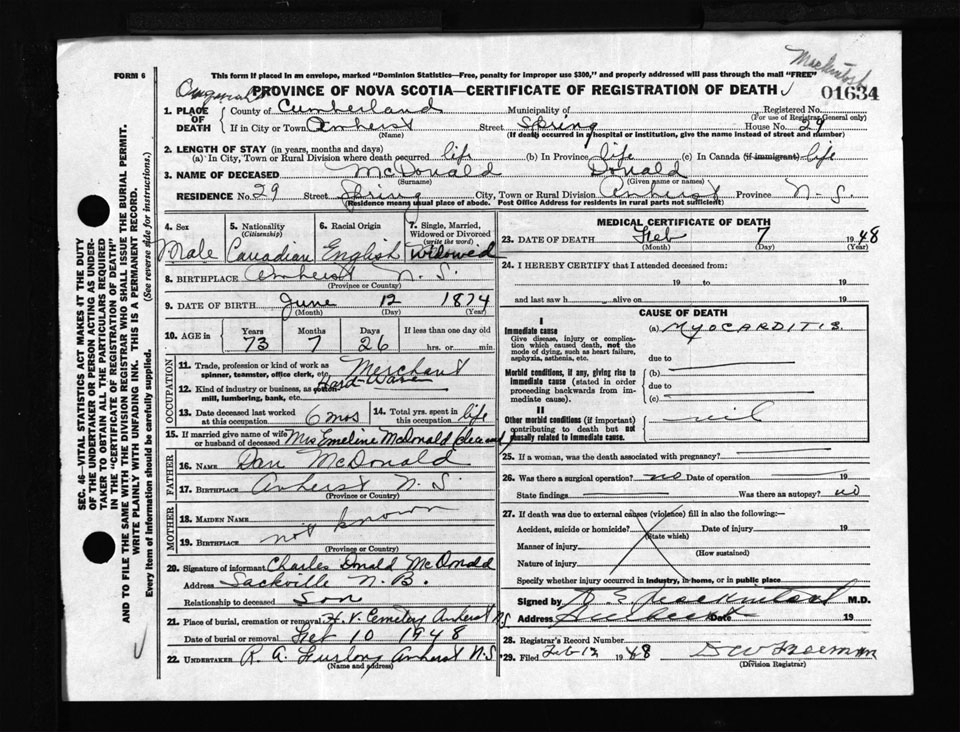 Mackintosh
FORM 6
This form if placed in an envelope, marked "Dominion Statistics—Free, penalty for improper use $300," and properly addressed will pass through the mail "FREE"
PROVINCE OF NOVA SCOTIA—CERTIFICATE OF REGISTRATION OF DEATH
01634
1. PLACE OF DEATH
County of Cumberland Municipality of Registered No.
(For use of Registrar General only)
If in City or Town Amherst Street Spring House No. 29
(Name) (If death occurred in a hospital or institution, give the name instead of street and number)
2. LENGTH OF STAY (in years, months and days)
(a) In City, Town or Rural Division where death occurred life (b) In Province life (c) In Canada (if immigrant) life
3. NAME OF DECEASED McDonald Donald
(Surname) (Given name or names)
RESIDENCE No. 29 Street Spring City, Town or Rural Division Amherst Province N-S.
(Residence means usual place of abode. Post Office Address for residents in rural parts not sufficient)
4. Sex Male
5. Nationality (Citizenship) Canadian
6. Racial Origin English
7. Single, Married, Widowed or Divorced (write the word) Widowed
8. BIRTHPLACE Amherst N.S.
(Province or County)
9. DATE OF BIRTH June 12 1874
(Month) (Day) (Year)
10. AGE in Years Months Days If less than one day old
73 7 26 hrs. or min.
OCCUPATION
11. Trade, profession or kind of work as spinner, teamster, office clerk, etc. Merchant
12. Kind of industry or business, as cotton mill, lumbering, bank, etc. Hard-Ware
13. Date deceased last worked at this occupation 6 mos
14. Total yrs. spent in this occupation life
15. If married give name of wife or husband of deceased Mrs Emeline McDonald
FATHER
16. NAME Dan McDonald
17. BIRTHPLACE Amherst N.S.
(Province or Country)
MOTHER
18. MAIDEN NAME
19. BIRTHPLACE not known
(Province or Country)
20. Signature of informant Charles Donald McDonald
Address Sackville N.B.
Relationship to deceased Son
21. Place of burial, cremation or removal H.V. Cemetery Amherst N.S
Date of burial or removal Feb 10 1948
22. UNDERTAKER R. A. Furlong Amherst N.S
(Name and address)
MEDICAL CERTIFICATE OF DEATH
23. DATE OF DEATH Feb 7 1948
(Month) (Day) (Year)
24. I HEREBY CERTIFY that I attended deceased from:
19 to 19
and last saw h alive on 19
CAUSE OF DEATH
I
Immediate cause
Give disease, injury or complication which caused death, not the mode of dying, such as heart failure, asphyxia, asthenia, etc.
(a) MYOCARDITIS.
due to
Morbid conditions, if any, giving rise to immediate cause (stated in order proceeding backwards from immediate cause).
(b)
due to
(c)
II
Other morbid conditions (if important) contributing to death but not causally related to immediate cause.
nil
25. If a woman, was the death associated with pregnancy?
26. Was there a surgical operation? no Date of operation 19
State findings Was there an autopsy? no
27. If death was due to external causes (violence) fill in also the following:—
Accident, suicide or homicide? Date of injury 19
(State which)
Manner of injury
(How sustained)
Nature of injury
Specify whether injury occurred in industry, in home, or in public place
Signed by M.D.
Address Date 19
28. Registrar's Record Number
29. Filed Feb 12 1948 D W Freeman
(Division Registrar)
SEC. 46—VITAL STATISTICS ACT MAKES AT THE DUTY
OF THE UNDERTAKER OR PERSON ACTING AS UNDER-
TAKER TO OBTAIN ALL THE PARTICULARS REQUIRED
IN THE "CERTIFICATE OF REGISTRATION OF DEATH"
AND TO FILE THE SAME WITH THE DIVISION REGISTRAR WHO SHALL ISSUE THE BURIAL PERMIT.
WRITE PLAINLY WITH UNFADING INK. THIS IS A PERMANENT RECORD.
Every item of Information should be carefully supplied. (See reverse side for instructions.)